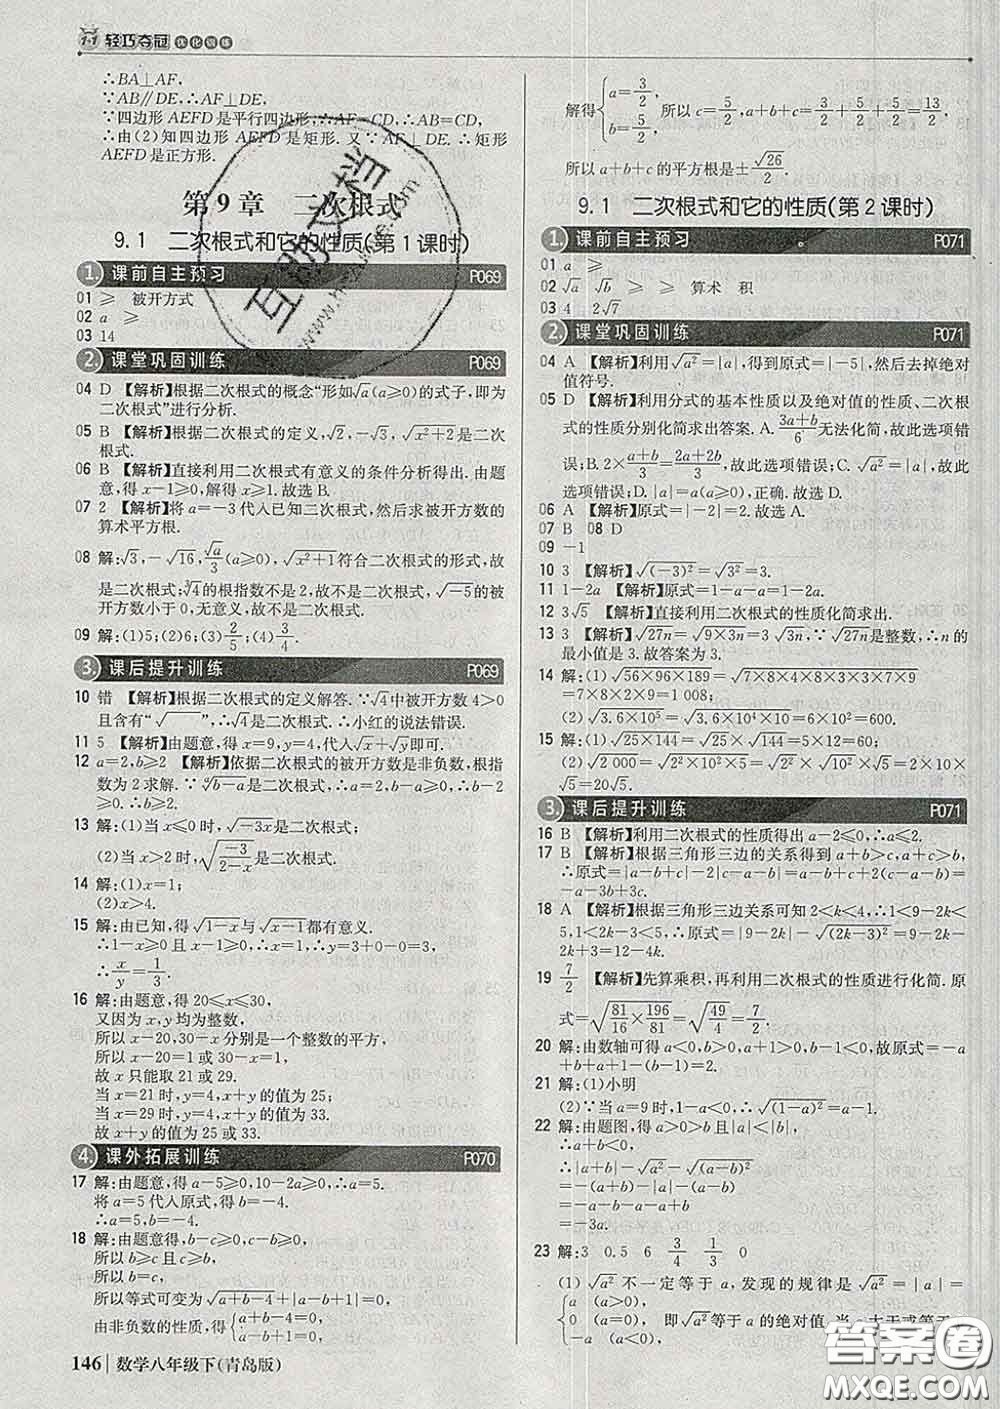 1+1 轻巧夺冠 优化训练
∴BA⊥AF,
∵AB∥DE,∴AF⊥DE,
∵四边形AEFD是平行四边形,∴AF=CD,∴AB=CD,
∴由(2)知四边形AEFD是矩形.又∵AF⊥DE.∴矩形
AEFD是正方形.
第9章 二次根式
9.1 二次根式和它的性质(第1课时)
1. 课前自主预习 P069
01 ≥ 被开方式
02 a ≥
03 14
2. 课堂巩固训练 P069
04 D 【解析】根据二次根式的概念“形如√a(a≥0)的式子,即为
二次根式”进行分析.
05 B 【解析】根据二次根式的定义,√2,-√3,√(x²+2)是二次
根式.
06 B 【解析】直接利用二次根式有意义的条件分析得出.由题
意,得x-1≥0,解得x≥1.故选B.
07 2 【解析】将a=-3代入已知二次根式,然后求被开方数的
算术平方根.
08 解:√3,-√16,√a/3(a≥0),√(x²+1)符合二次根式的形式,故
是二次根式;∛4的根指数不是2,故不是二次根式,√-5的被
开方数小于0,无意义,故不是二次根式.
09 解:(1)5;(2)6;(3)2/5;(4)3/4.
3. 课后提升训练 P069
10 错 【解析】根据二次根式的定义解答.∵√4中被开方数4>0
且含有“√ ”,∴√4是二次根式.∴小红的说法错误.
11 5 【解析】由题意,得x=9,y=4,代入√x+√y即可.
12 a=2,b≥2 【解析】依据二次根式的被开方数是非负数,根指
数为2求解.∵ᵃ√(b-a)是二次根式,∴a=2,b-a≥0,∴b-2
≥0.∴b≥2.
13 解:(1)当x≤0时,√(-3x)是二次根式;
(2)当x>2时,√(-3/(2-x))是二次根式.
14 解:(1)x=1;
(2)x>4.
15 解:由已知,得√(1-x)与√(x-1)都有意义.
∴1-x≥0且x-1≥0,∴x=1,∴y=3+0-0=3,
∴x/y=1/3.
16 解:由题意,得20≤x≤30,
又因为x,y均为整数,
所以x-20,30-x分别是一个整数的平方,
故x-20=1或30-x=1,
故x只能取21或29.
当x=21时,y=4,x+y的值为25;
当x=29时,y=4,x+y的值为33.
故x+y的值为25或33.
4. 课外拓展训练 P070
17 解:由题意,得a-5≥0,10-2a≥0,∴a=5.
将a=5代入原式,得b=-4.
∴a=5,b=-4.
18 解:由题意得,b-c≥0,c-b≥0,
所以b≥c且c≥b,
所以b=c,
所以等式可变为√(a+b-4)+|a-b+1|=0,
由非负数的性质,得{a+b-4=0, a-b+1=0,
146 数学八年级下(青岛版)
解得{a=3/2, b=5/2, 所以c=5/2,a+b+c=3/2+5/2+5/2=13/2,
所以a+b+c的平方根是±√26/2.
9.1 二次根式和它的性质(第2课时)
1. 课前自主预习 P071
01 a ≥
02 √a √b ≥ ≥ 算术 积
03 4 2√7
2. 课堂巩固训练 P071
04 A 【解析】利用√a²=|a|,得到原式=|-5|,然后去掉绝对
值符号.
05 D 【解析】利用分式的基本性质以及绝对值的性质、二次根
式的性质分别化简求出答案.A.(3a+b)/6无法化简,故此选项错
误;B.2×(a+b)/3=(2a+2b)/3,故此选项错误;C.√a²=|a|,故此选
项错误;D.|a|=a(a≥0),正确.故选D.
06 A 【解析】原式=|-2|=2.故选A.
07 B 08 D
09 -1
10 3 【解析】√(-3)²=√3²=3.
11 1-2a 【解析】原式=1-a-a=1-2a.
12 3√5 【解析】直接利用二次根式的性质化简求出.
13 3 【解析】√27n=√(9×3n)=3√3n,∵√27n是整数,∴n的
最小值是3.故答案为3.
14 解:(1)√(56×96×189)=√(7×8×4×8×3×3×7×9)
=7×8×2×3×3=1 008;
(2)√(3.6×10⁵)=√(3.6×10⁴×10)=6×10²=600.
15 解:(1)√(25×144)=√25×√144=5×12=60;
(2)√2 000=√(2²×10²×5)=√2²×√10²×√5=2×10
×√5=20√5.
3. 课后提升训练 P071
16 B 【解析】利用二次根式的性质得出a-2≤0,∴a≤2.
17 B 【解析】根据三角形三边的关系得到a+b>c,a+c>b,
∴原式=|a-b+c|-2|c-a-b|=a-b+c+2(c-a-b)=
-a-3b+3c.
18 A 【解析】根据三角形三边关系可知2<k<4,∴1<9-2k<
5,1<2k-3<5,∴原式=|9-2k|-√(2k-3)²=9-2k-
2k+3=12-4k.
19 7/2 【解析】先算乘积,再利用二次根式的性质进行化简.原
式=√(81/16×196/81)=√(49/4)=7/2.
20 解:由数轴可得a<0,b>0,a+1>0,b-1<0,故原式=-a
+b+a+1-(b-1)=2.
21 解:(1)小明
(2)∵当a=9时,1-a<0,∴√(1-a)²=a-1.
22 解:由题图,得a>0>b且|a|<|b|,
∴a+b<0,
∴|a+b|-√a²-√b²+|a-b|
=-a-b-a-(-b)-(a-b)
=-a-b-a+b-a+b
=-3a.
23 解:3 0.5 6 3/4 1/3 0
(1)√a²不一定等于a,发现的规律是√a²=|a|=
{a (a>0), 0 (a=0), -a (a<0), 即√a²等于a的绝对值,当a大于或等于
互助文档
答案圈
MXQE.COM